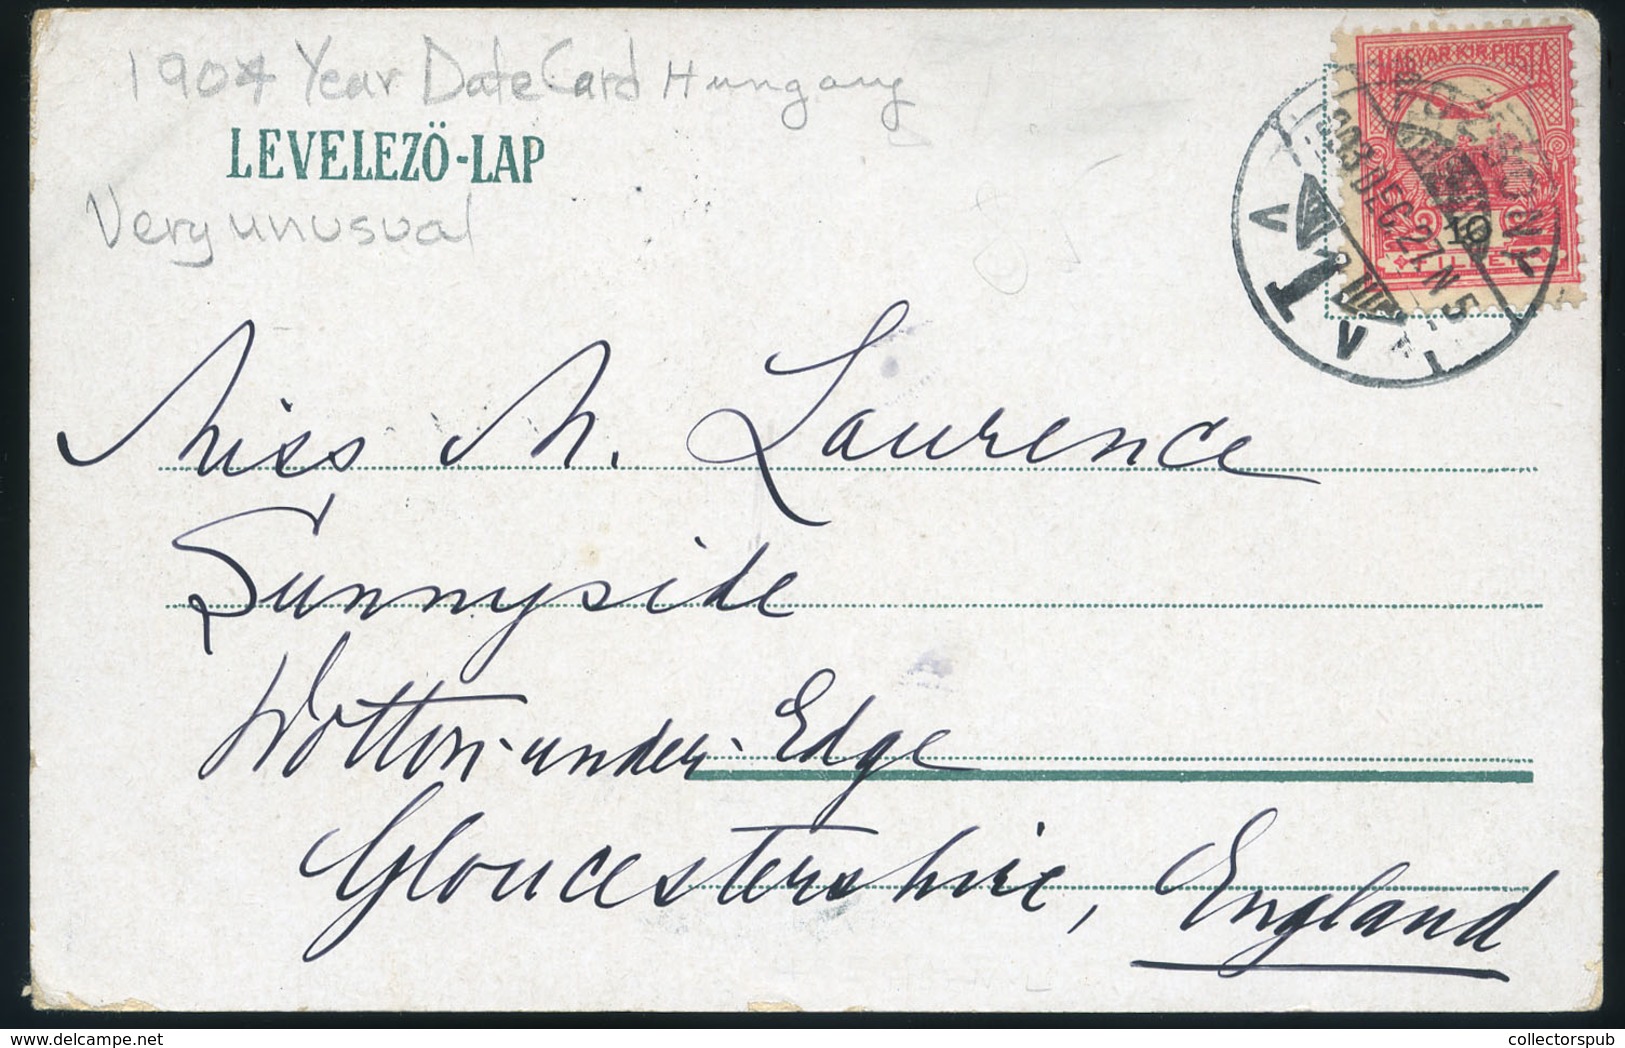 1904 Year Date Card Hungary
LEVELEZÖ-LAP
Very unusual
MAGYAR KIR. POSTA
10
FILLÉR
903 DEC 27. N 5
Miss M. Laurence
Sunnyside
Wotton-under-Edge
Gloucestershire, England
www.delcampe.net
collectorspub